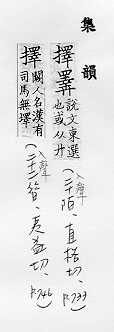 集韻
擇𢍰 說文柬選也或从廾
(入聲)
(二十陌,直格切,P.733)
擇 闕人名漢有司馬無擇
(入聲)
(二十二昔,夷益切,P.746)